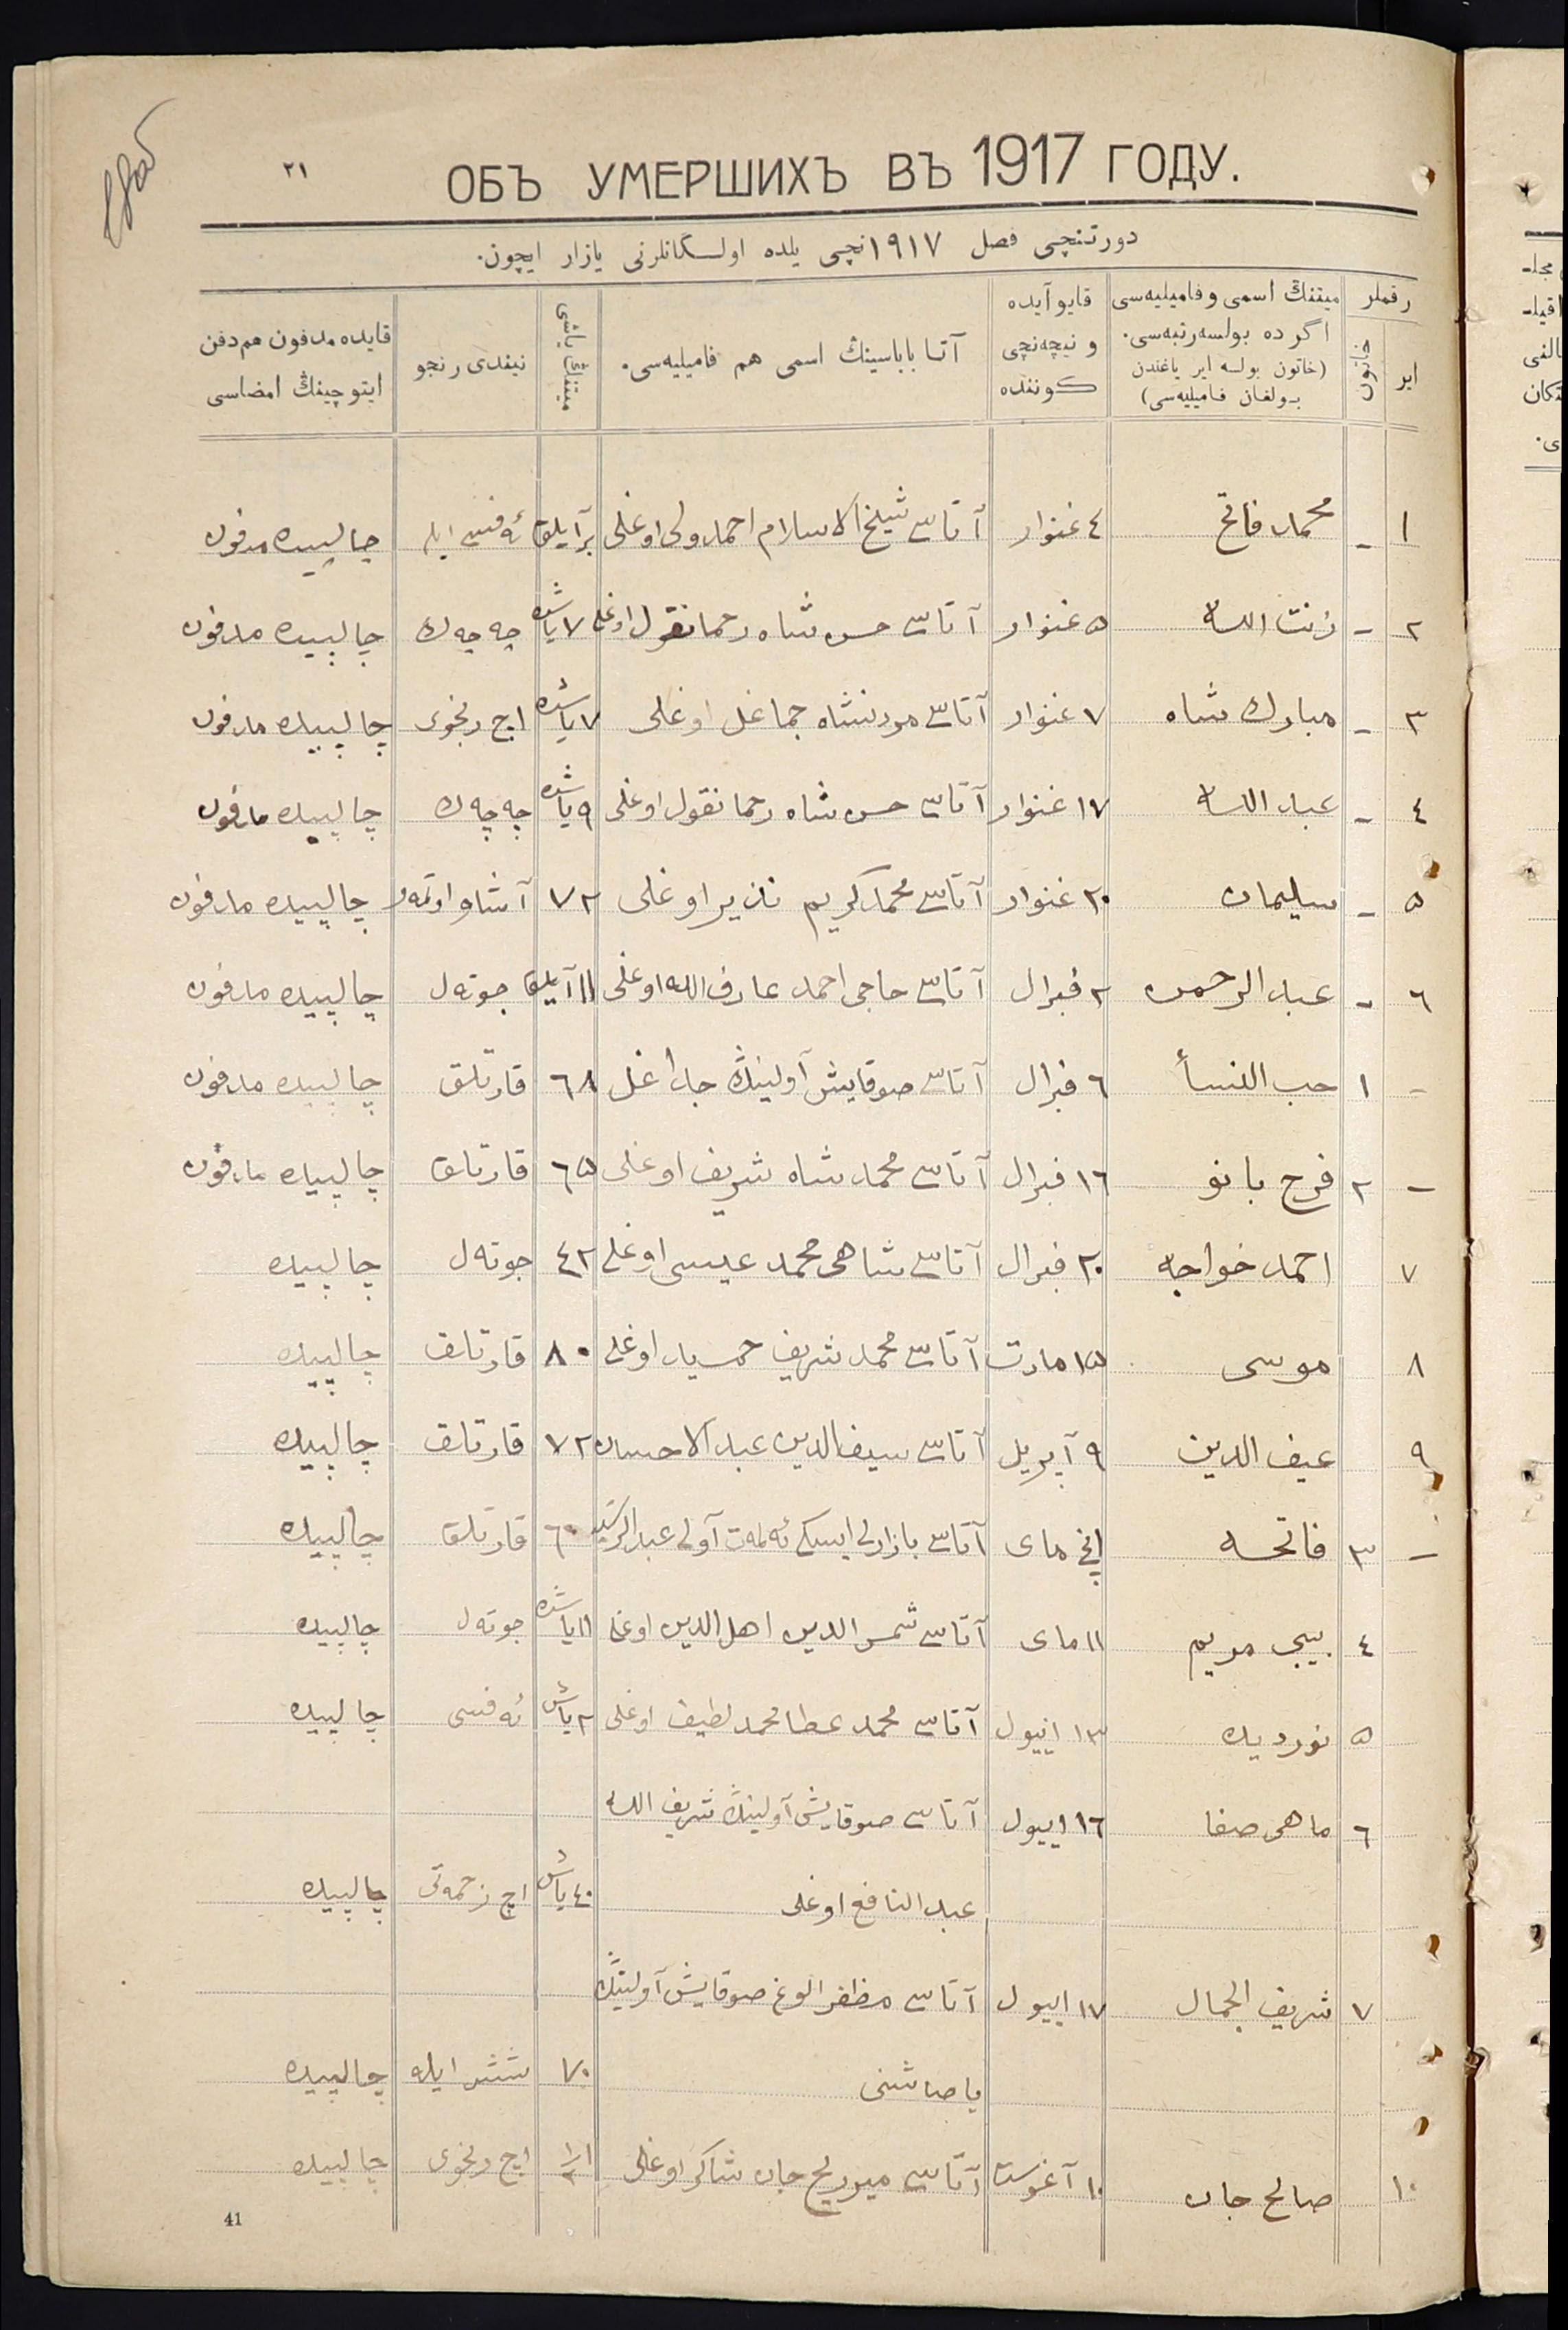 ٢١
ОБЪ УМЕРШИХЪ ВЪ 1917 ГОДУ.
دورتنچی فصل ١٩١٧نچی یلده اولـسگانلرنی یازار ایچون.
رقملر
ایر
خاتون
میتنڭ اسمی و فامیلیه‌سی
اگر ده بولسه رتبه‌سی.
(خاتون بولسه ایر یاغندن
بـولغان فامیلیه‌سی)
قایو آیده
و نیچه‌نچی
کـوننده
آتـا باباسینڭ اسمی هم فامیلیه‌سی.
میتنڭ یاشی
نیندی رنجو
قایده مدفون هم دفن
ایتوچینڭ امضاسی
١ - محمد فاتح ٤ غنوار آتاسی شیخ الاسلام احمد ولی اوغلی بر آیلق ئه‌فسی ایله چالپیده مدفون
٢ - زنت الله ٥ غنوار آتاسی حسن شاه رحمانقول اوغلی ٧ یاشده چه چه‌ك چالپیده مدفون
٣ - مبارك شاه ٧ غنوار آتاسی مردنشاه جماغل اوغلی ٧ یاشده اچ رنجوی چالپیده مدفون
٤ - عبد الله ١٧ غنوار آتاسی حسن شاه رحمانقول اوغلی ٩ یاشده چه چه‌ك چالپیده مدفون
٥ - سلیمان ٢٠ غنوار آتاسی محمد کریم نذیر اوغلی ٧٢ آشاو اوتمه‌و چالپیده مدفون
٦ - عبد الرحمن ٢ فبرال آتاسی حاجی احمد عارف الله اوغلی ١١ آیلق جوته‌ل چالپیده مدفون
- ١ حب النسأ ٦ فبرال آتاسی صوقایش آولینڭ جان اغل ٦٨ قارتلق چالپیده مدفون
- ٢ فرح بانو ١٦ فبرال آتاسی محمد شاه شریف اوغلی ٦٥ قارتلق چالپیده مدفون
٧ احمد خواجه ٢٠ فبرال آتاسی شاهی محمد عیسی اوغلی ٤٢ جوته‌ل چالپیده
٨ موسی ١٥ مارت آتاسی محمد شریف حمید اوغلی ٨٠ قارتلق چالپیده
٩ عیف الدین ٩ آپریل آتاسی سیف الدین عبد الاحسان ٧٢ قارتلق چالپیده
- ٣ فاتحه مای آتاسی بازارلی ایسکی آولی عبد الرشید ٦٠ قارتلق چالپیده
٤ بیبی مریم ١١ مای آتاسی شمس الدین اهل الدین اوغلی ١١ یاشده جوته‌ل چالپیده
٥ نوردیده ١٣ اییول آتاسی محمد عطا محمد لطیف اوغلی ٢ یاش ئه‌فسی چالپیده
٦ ماهی صفا ١٦ اییول آتاسی صوقایش آولینڭ شریف الله
عبد النافع اوغلی ٤٠ یاش اچ زحمه‌تی چالپیده
٧ شریف الجمال ١٧ اییول آتاسی مظفر الوغ صوقایش آولینڭ
٧٠ شش ایله چالپیده
١٠ صالح جان ١٠ آغوست آتاسی جان شاکر اوغلی ١ ١/٢ اچ رنجوی چالپیده
41